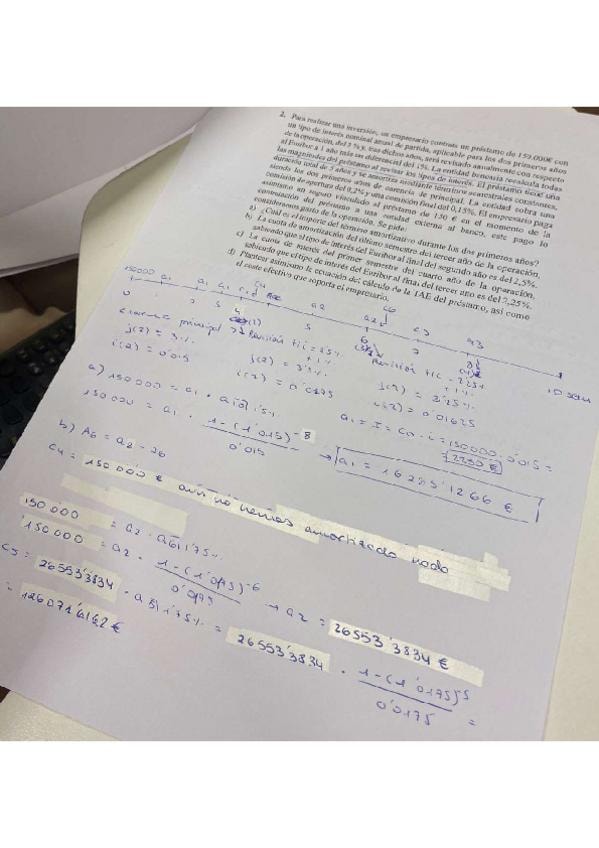 2. Para realizar una inversión, un empresario contrata un préstamo de 150.000€ con
un tipo de interés nominal anual de partida, aplicable para los dos primeros años
de la operación, del 3% y, tras dichos años, será revisado anualmente con respecto
al Euribor a 1 año más un diferencial del 1%. La entidad bancaria recalcula todas
las magnitudes del préstamo al revisar los tipos de interés. El préstamo tiene una
duración total de 5 años y se amortiza mediante términos semestrales constantes,
siendo los dos primeros años de carencia de principal. La entidad cobra una
comisión de apertura del 0,2% y una comisión final del 0,15%. El empresario paga
asimismo un seguro vinculado al préstamo de 130 € en el momento de la
contratación del préstamo a una entidad externa al banco, este pago lo
consideramos parte de la operación. Se pide:
a) ¿Cuál es el importe del término amortizativo durante los dos primeros años?
b) La cuota de amortización del último semestre del tercer año de la operación,
sabiendo que el tipo de interés del Euribor al final del segundo año es del 2,5%.
c) La cuota de interés del primer semestre del cuarto año de la operación,
sabiendo que el tipo de interés del Euribor al final del tercer año es del 2,25%.
d) Plantear asimismo la ecuación del cálculo de la TAE del préstamo, así como
el coste efectivo que soporta el empresario.
150000 a1 a1 a1 a2 a2 C6 a3 a3
0 2 3 4 5 6 7 8 10 sem
carencia principal Revisión tic = 2'5%
+1% Revisión tic = 2'25%
+1%
j(2) = 3% j(2) = 3'5% j(2) = 3'25%
i(2) = 0'015 i(2) = 0'0175 i(2) = 0'01625
a) 150000 = a1 · a8|1'5%
a1 = I = C0 · i = 150000 · 0'015 =
= 2250 €
150000 = a1 · 1-(1'015)-8 / 0'015 → a1 = 16235'1266 €
b) A6 = a2 - I6
C4 = 150 000 € aún no hemos amortizado nada
150 000 = a2 · a6|1'75%
150 000 = a2 · 1-(1'0175)-6 / 0'0175 → a2 = 26553'3834 €
C5 = 26553'3834 · a5|1'75% = 26553'3834 · 1-(1'0175)-5 / 0'0175 =
= 126071'6162 €